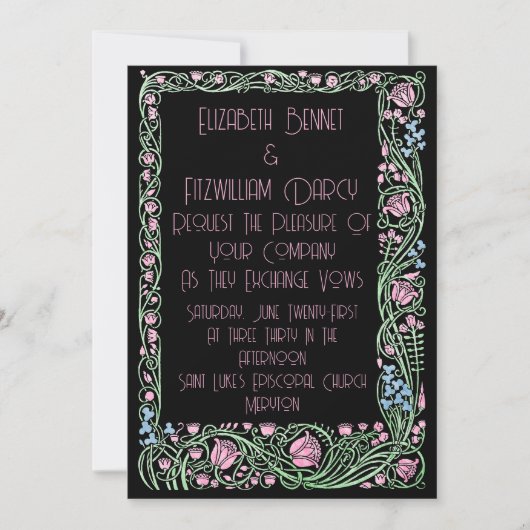 Elizabeth Bennet
&
Fitzwilliam Darcy
Request The Pleasure Of
Your Company
As They Exchange Vows
Saturday, June Twenty-First
At Three Thirty In The
Afternoon
Saint Luke's Episcopal Church
Meryton